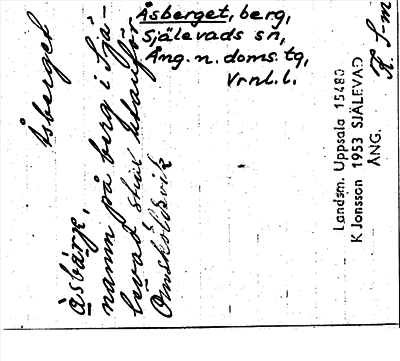 Åsberget, berg,
Själevads sn,
Ång. n. doms. tg,
Vrnl. l.
Åsberget
Åsbärje,
namn på berg i Sjä-
levad strax utanför
Örnsköldsvik
Landsm. Uppsala 15480
K Jonsson 1953 SJÄLEVAD
ÅNG.
K. S-m